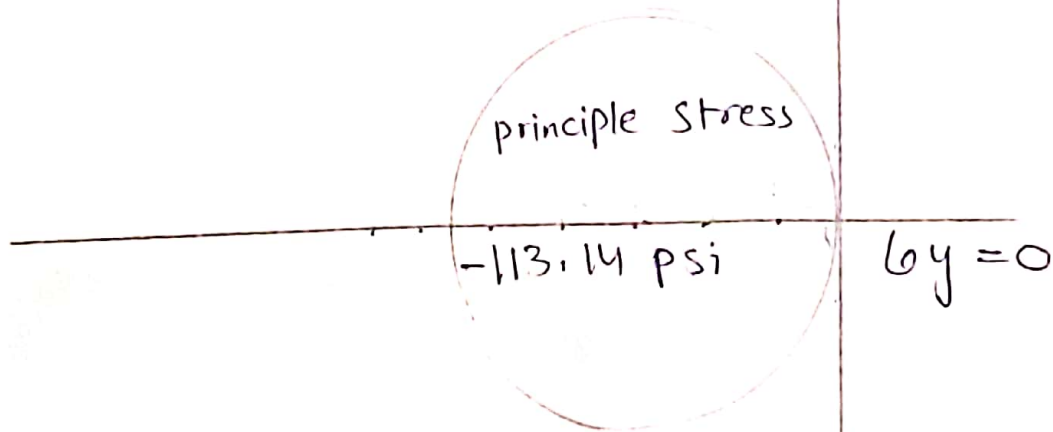 principle stress
-113.14 psi
6y = 0